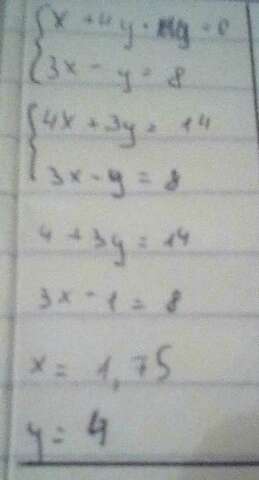 x + 4y = 0
3x - y = 8
4x + 3y = 14
3x - y = 8
4 + 3y = 14
3x - 1 = 8
x = 1,75
y = 4